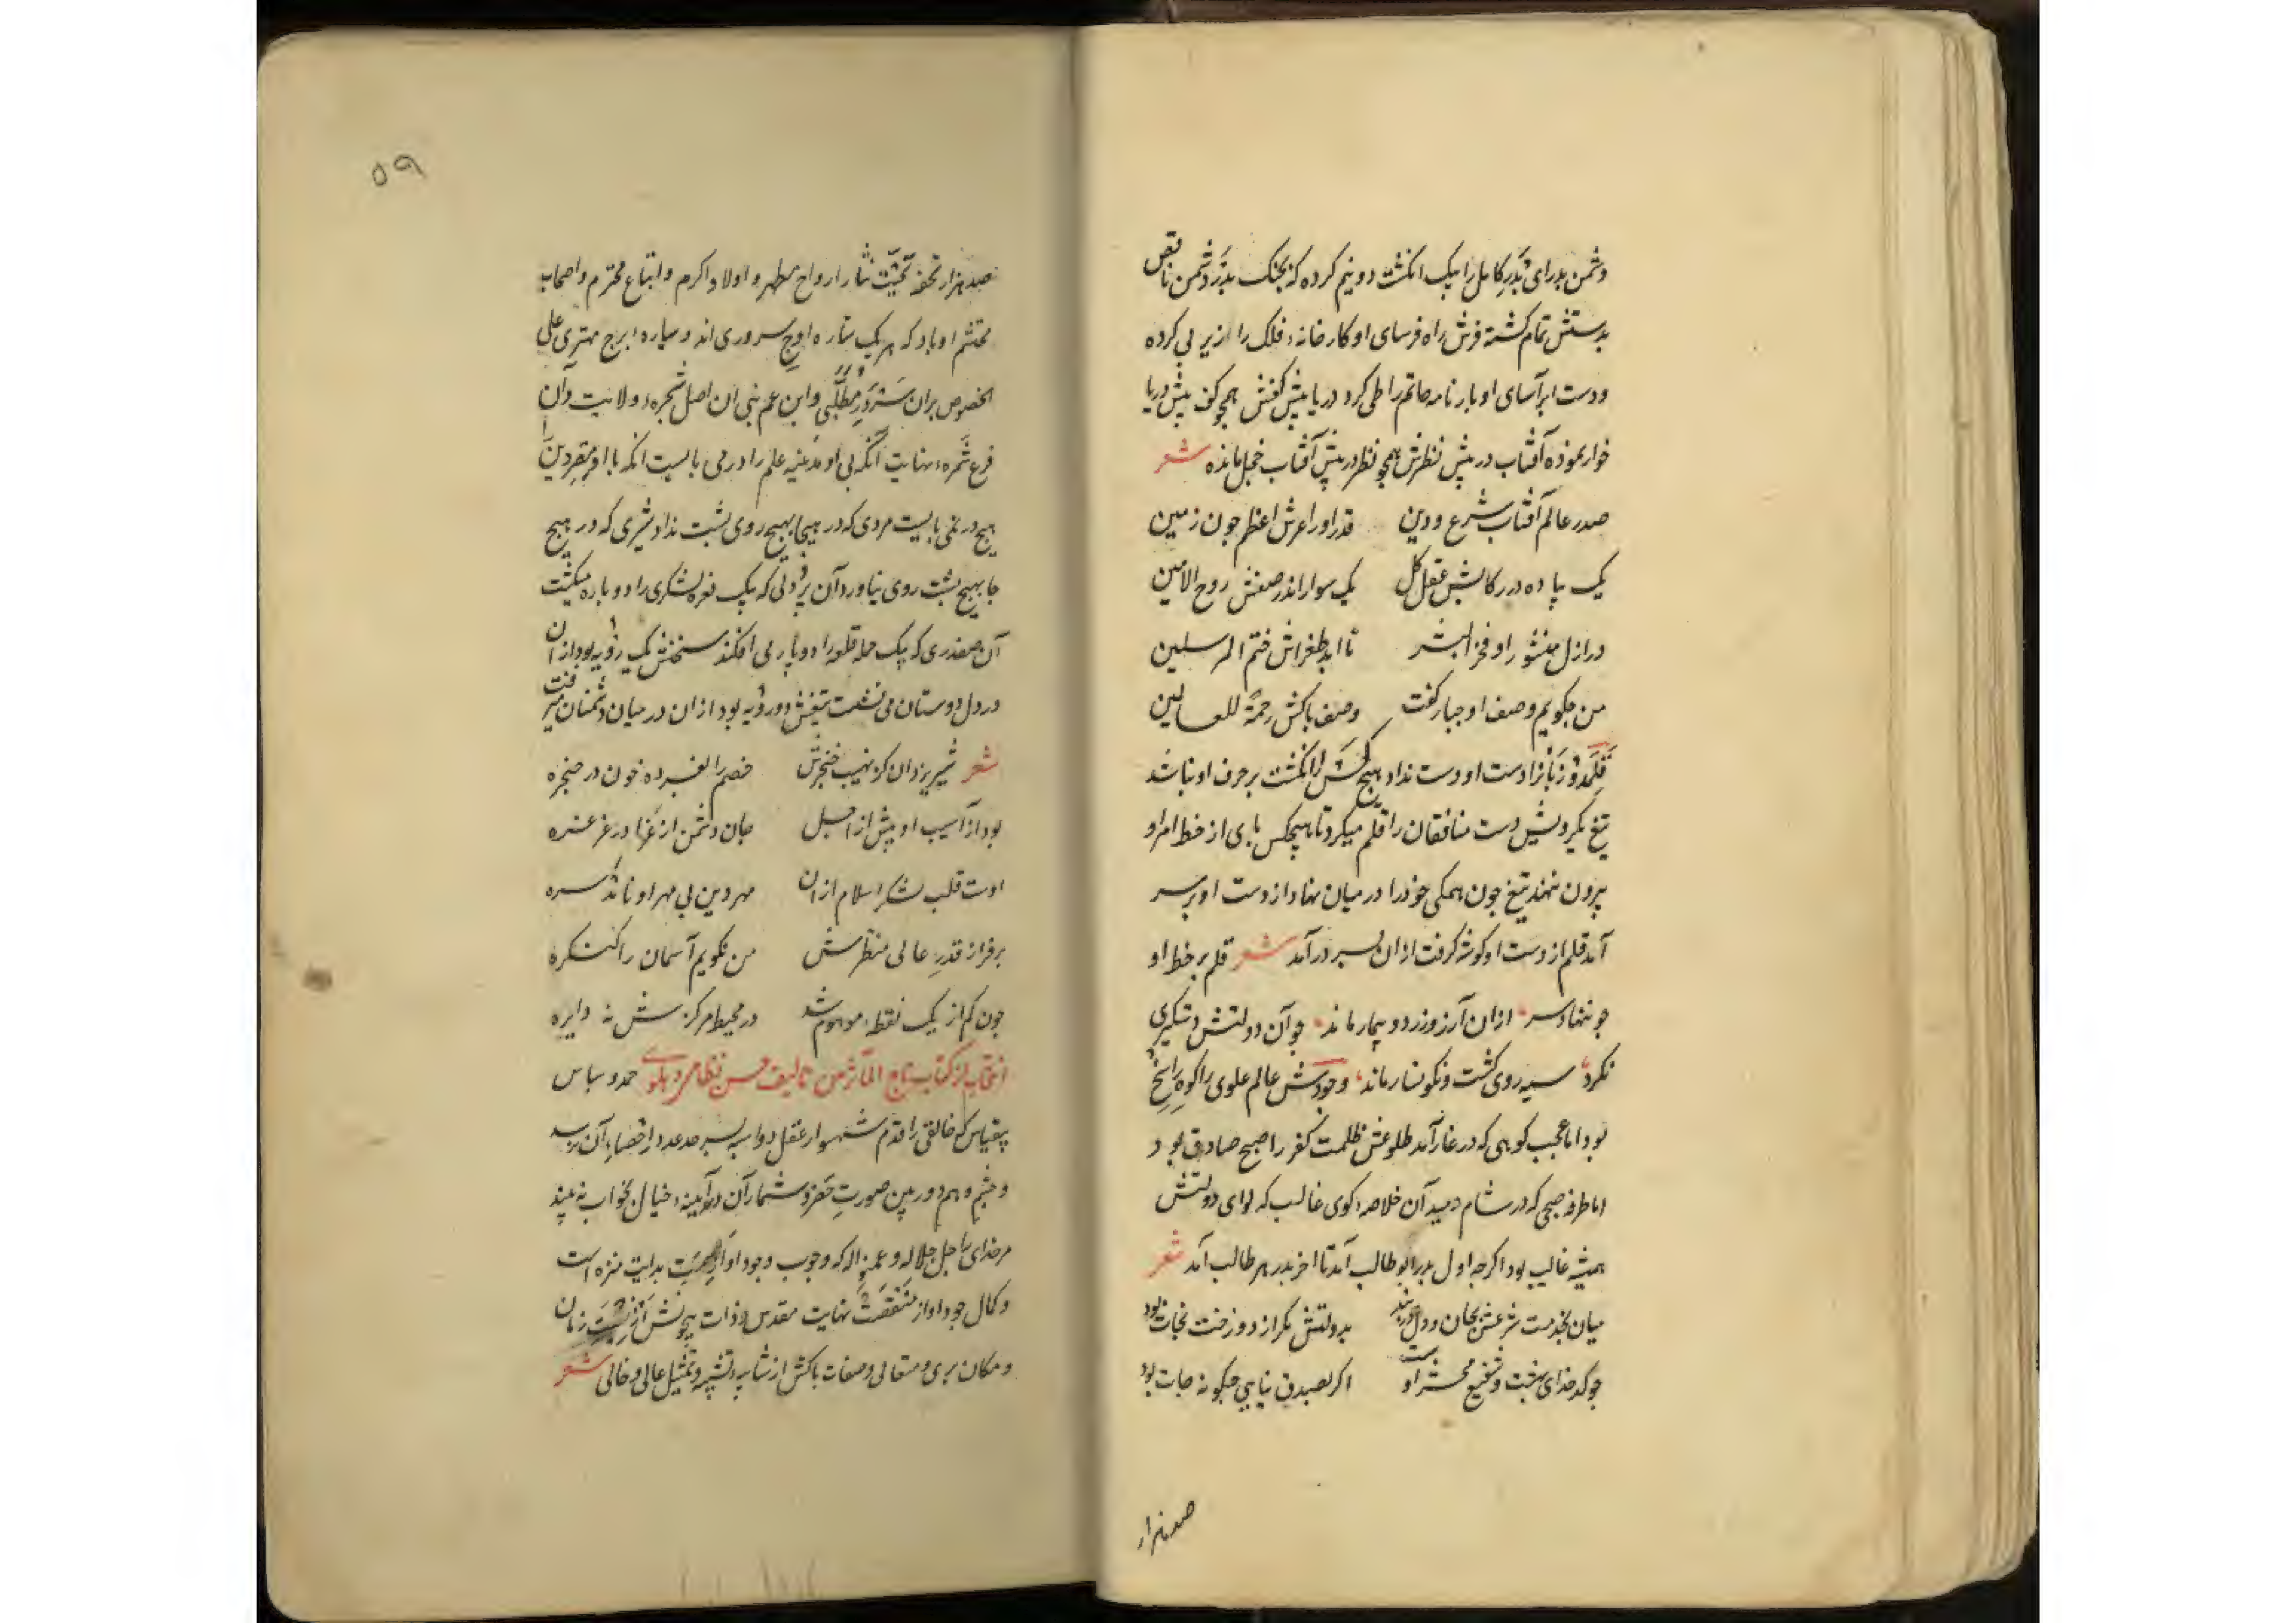 دشمن بدرای بدر کامل را بیک انکشت دو نیم کرده که بجنک بدر دشمن ناقص
بدستش تمام کشته فرش راه فرسای او کارخانهٔ فلک را از یر پی کرده
و دست ابرآسای او بارنامه حاتم را طی کرد دریا پیش کفش همچو کف پیش دریا
خوار نموده آفتاب در پیش نظرش همچو نظر در پیش آفتاب خجل مانده شعر
صدر عالم آفتاب شرع و دین قدر او را عرش اعظم جون زمین
یک پیاده در رکابش عقل کل یک سوار اندر صفش روح الامین
در ازل منشور او فخر البشر تا ابد طغراش ختم المرسلین
من جکویم وصف او جبار کفت وصف باکش رحمة للعالمین
قلمدو زبانرا دست او دست نداد هیج کس را انکشت برحرف او نباشد
تیغ یکرویش دست منافقان را قلم میکرد تا هیچکس پای از خط امر او
بیرون ننهد تیغ جون همکی خود را در میان نهاد از دست او بر سر
آمد قلم از دست او کوشه کرفت ازان بسر درآمد شعر قلم بر خط او
جو ننهاد سر ازان آرزو زرد و بیمار ماند جو آن دولتش دستکیری
نکرد سیه روی کشت و نکونسار ماند وجودش عالم علوی را کوه راسخ
بود اما عجب کوهی که در غار آمد طلوعش ظلمت کفر را صبح صادق بود
اما طرفه صبحی که در شام دمید آن خلاصهٔ کوی غالب که لوای دولتش
همیشه غالب بود اکرجه اول بدر ابو طالب آمد تا اخر بدر هر طالب آمد شعر
میان بخدمت شرعش بجان و دل در بند بدولتش مکر از دوزخت نجات بود
جو کدخدای بهشت و شفیع محشر اوست اکر بصدق نیایی جکونه جات بود
صد هزار
۵۹
صد هزار تحفهٔ تحیت نثار ارواح مطهر و اولاد اکرم و اتباع محترم و اصحاب
محتشم او باد که هر یک ستارهٔ اوج سروری اند و سیارهٔ ابرج مهتری علی
الخصوص بران سرور مطلبی و ابن عم نبی ان اصل شجرهٔ ولایت و آن
فرع ثمرهٔ نهایت آنکه بی او مدینه علم را در می بایست انکه با افر سر دین را
هیج در نمی بایست مردی که در هیجا بهیج روی پشت نداد شیری که در هیج
جا بهیج پشت روی نیاورد آن پردلی که بیک نعره لشکری را دو باره میکشت
آن صفدری که بیک حمله قلعه را دو پاره می افکند سخنش یک رویه بود از ان
در دل دوستان می نشست تیغش دو رویه بود از ان در میان دشمنان میرفت
شعر شیر یزدان کز نهیب خنجرش خصم را افسرده خون در حنجره
بود از آسیب او پیش از اجل جان دشمن از غزا در غرغره
اوست قلب لشکر اسلام ازان مهر دین بی مهر او ناشد سره
بر فراز قدر عالی منظرش من نکویم آسمان را کنکره
جون کم از یک نقطهٔ موهوم شد در محیط مرکزش نه دایره
انتخاب از کتاب تاج المآثر من تالیف حسن نظامی دهلوی حمد و سباس
بیقیاس که خالقی را قدم شهسوار عقل دواسبه بسر حد عدد و احصاء آن نرسد
و چشم وهم دوربین صورت حصر و شمار آن در آیینهٔ خیال بخواب نه بیند
مر خدای را جل جلاله و عم نواله که وجوب وجود او از وصمت بدایت منزه است
و کمال جود او از منقصت نهایت مقدس و ذات بیچونش از زمان
و مکان بری و متعالی و صفات باکش از شایبهٔ تشبیه و تمثیل عالی و خالی شعر